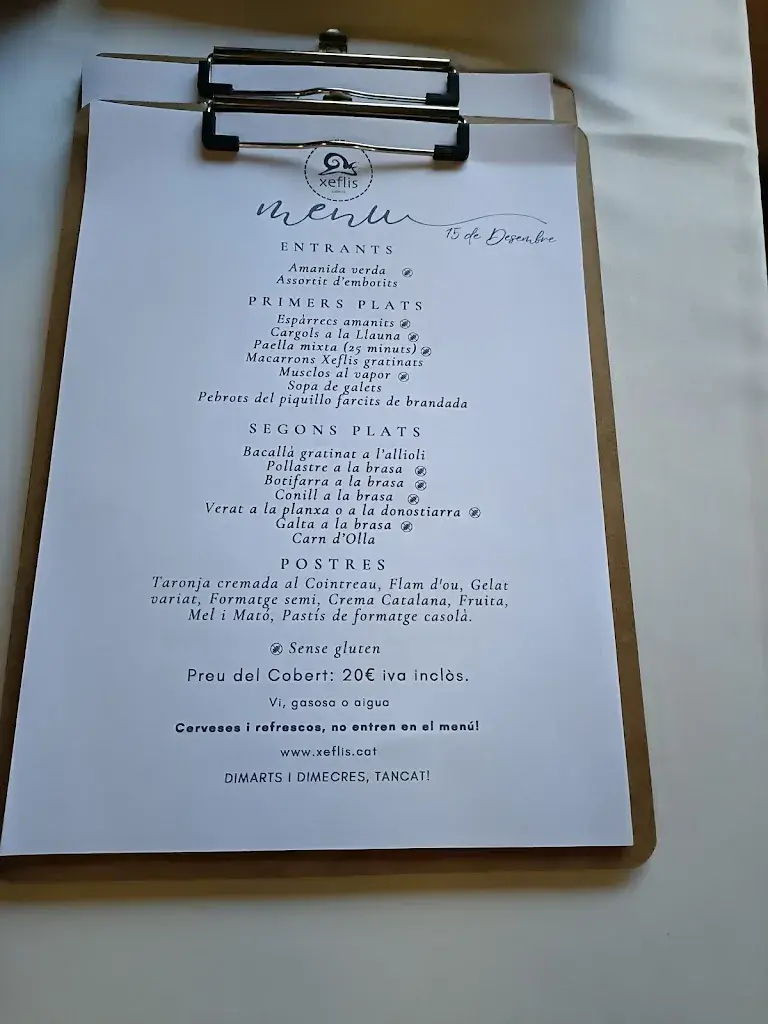 xeflis
menu
15 de Desembre
ENTRANTS
Amanida verda
Assortit d'embotits
PRIMERS PLATS
Espàrrecs amanits
Cargols a la Llauna
Paella mixta (25 minuts)
Macarrons Xeflis gratinats
Musclos al vapor
Sopa de galets
Pebrots del piquillo farcits de brandada
SEGONS PLATS
Bacallà gratinat a l'allioli
Pollastre a la brasa
Botifarra a la brasa
Conill a la brasa
Verat a la planxa o a la donostiarra
Galta a la brasa
Carn d'Olla
POSTRES
Taronja cremada al Cointreau, Flam d'ou, Gelat
variat, Formatge semi, Crema Catalana, Fruita,
Mel i Mató, Pastís de formatge casolà.
Sense gluten
Preu del Cobert: 20€ iva inclòs.
Vi, gasosa o aigua
Cerveses i refrescos, no entren en el menú!
www.xeflis.cat
DIMARTS I DIMECRES, TANCAT!